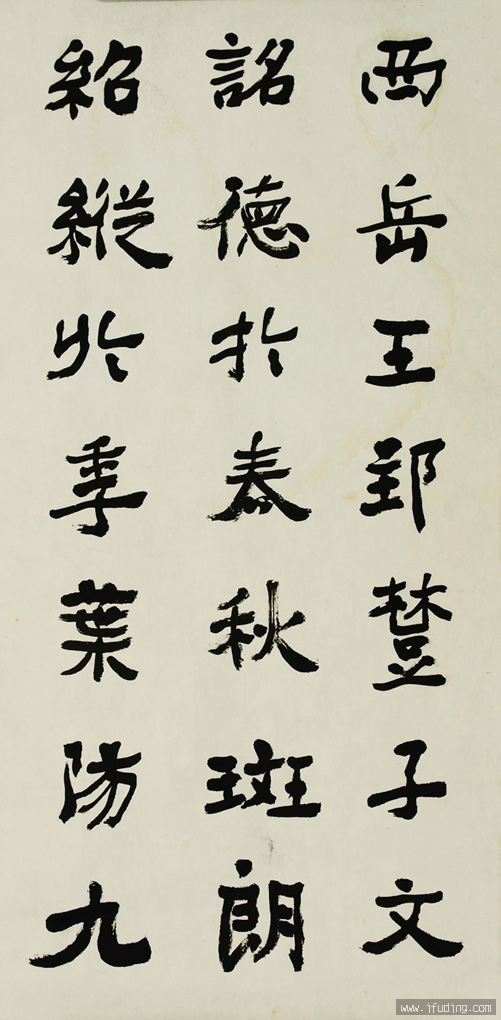 西岳王郢楚子文
詺德於春秋斑朗
紹縱於季葉防九
www.jfuding.com